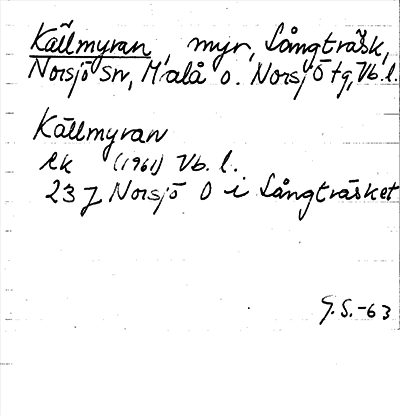 Källmyran, myr, Långträsk,
Norsjö sn, Malå o. Norsjö tg, Vb. l.
Källmyran
ek (1961) Vb. l.
23 J Norsjö O i Långträsket
G.S.-63